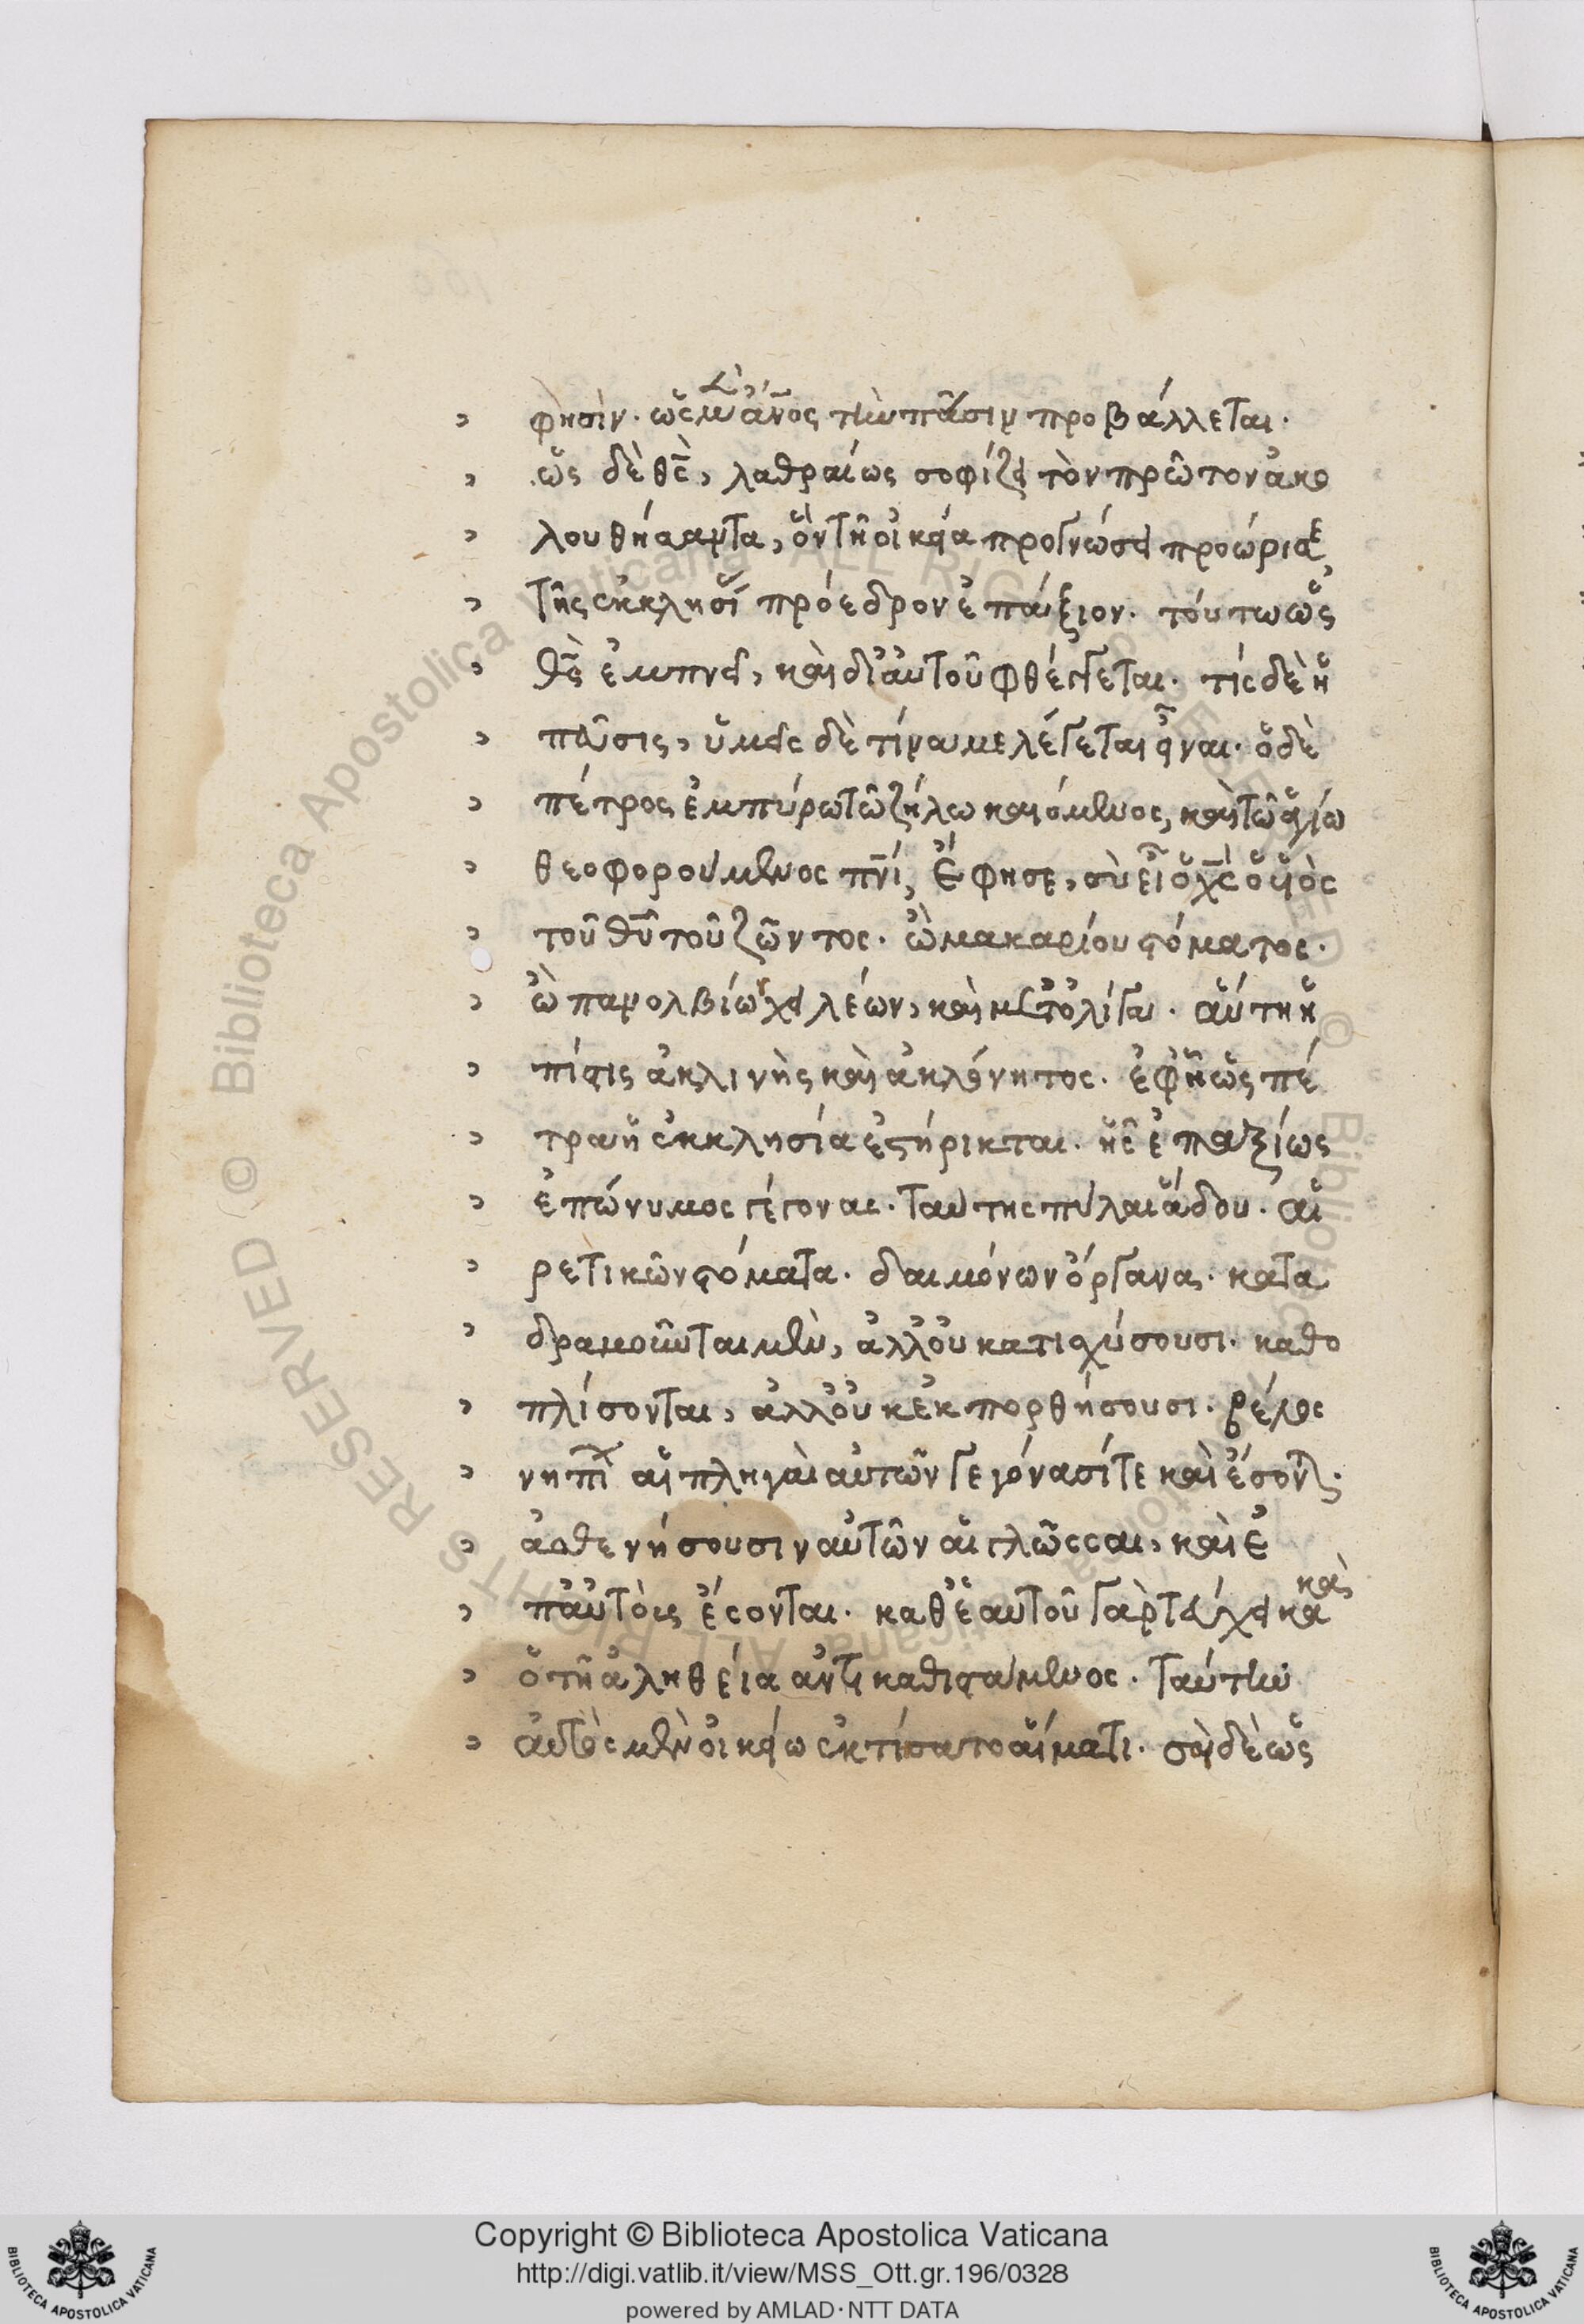 φησὶν· ὡς μὲν ἄν̅ος τὴν πᾶσιν προβάλλεται·
ὡς δὲ θς̅, λαθραίως σοφίζει τὸν πρῶτον ἀκο
λουθήσαντα, ὃν τῆ οἰκεία προγνώσει προώρισε
τῆς ἐκκλησίας πρόεδρον ἐπάξιον· τούτω ὡς
θς̅ ἐμπνεῖ, καὶ δι' αὐτοῦ φθέγγεται· τίς δὲ ἡ
ὑμεῖς δὲ τίνα με λέγεται εἶναι· ὁ δὲ
πέτρος ἐμπύρω τῶ ζήλω καιόμενος, καὶ τῶ ἁγίω
θεοφορούμενος πν̅ι, ἔφησε, σὺ εἶ ὁ χς̅ ὁ υἱὸς
τοῦ θυ̅ τοῦ ζῶντος· ὢ μακαρίου στόματος·
ὢ πανολβίων χειλέων, καὶ αὕτη ἡ
πίστις ἀκλινὴς καὶ ἀκλόνητος· ἐφ' ἧ ὡς πέ
τρα ἡ ἐκκλησία ἐστήρικται· ἧς ἐπαξίως
ἐπώνυμος γέγονας· ταύτης πύλαι ἅδου· αἱ
ρετικῶν στόματα· δαιμόνων ὄργανα· κατα
δραμοῦνται μὲν, ἀλλ' οὐ κατισχύσουσι· καθο
πλίσονται, ἀλλ' οὐκ ἐκπορθήσουσι· βέλος
νηπί αἱ πληγαὶ αὐτῶν γεγόνασί τε καὶ ἔσονται·
ἀσθενήσουσιν αὐτῶν αἱ γλῶσσαι, καὶ ἐ
π' αὐτοὺς ἔσονται· καθ' ἑαυτοῦ γὰρ τεύχει κακὰ
ὁ τῆ ἀληθεία ἀντικαθιστάμενος· ταύτην
αὐτὸς μὲν οἰκείω ἐκτίσατο αἵματι· σοὶ δὲ ὡς
Copyright © Biblioteca Apostolica Vaticana
http://digi.vatlib.it/view/MSS_Ott.gr.196/0328
powered by AMLAD·NTT DATA